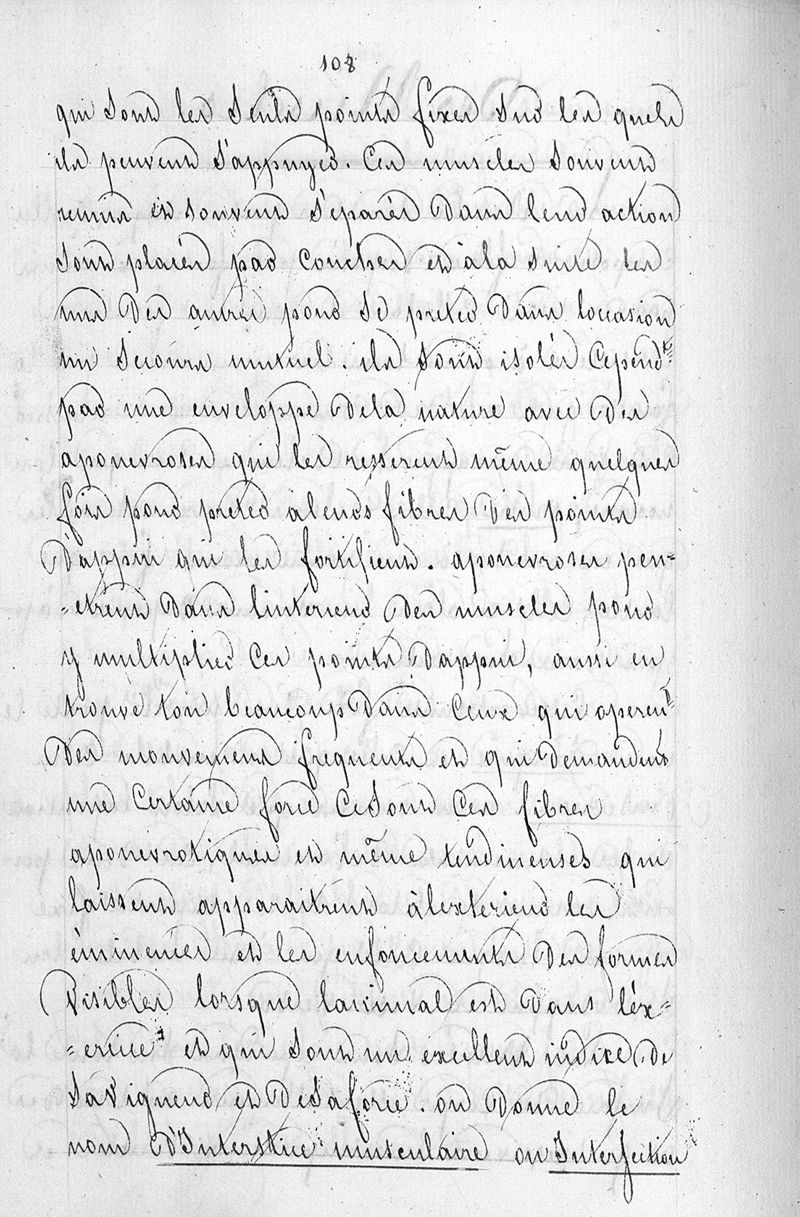 108
qui sont les seuls points fixes sur les quels
ils peuvent s'appuyer. Ces muscles souvent
reunis et souvent séparés dans leur action
sont placés par couches et a la suite les
uns des autres pour se preter dans loccasion
un secours mutuel. ils sont isolés cependt
par une enveloppe dela nature avec des
aponevroses qui les resserent même quelques
fois pour preter a leurs fibres des points
D'appui qui les fortifient. aponevroses pen-
-etrent dans linterieur des muscles pour
y multiplier ces points dappui, aussi en
trouve ton beaucoup dans ceux qui operent
des mouvemens frequents et qui demandent
une certaine force ce sont ces fibres
aponevrotiques et même tendineuses qui
laissent apparaitrent àlexterieur les
éminences et les enfoncements des formes
visibles lorsque lanimal est dans léx-
-ercice et qui sont un excellent indice de
sa vigueur et de sa force. on donne le
nom d'Interstice musculaire ou Intersection